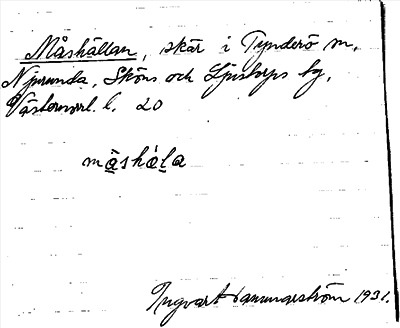 Måshällan, skär i Tynderö m.
Njurunda, Sköns och Ljustorps tg,
Västernorrl. l. 20
måshàla
Ingvart Hammarström 1931.